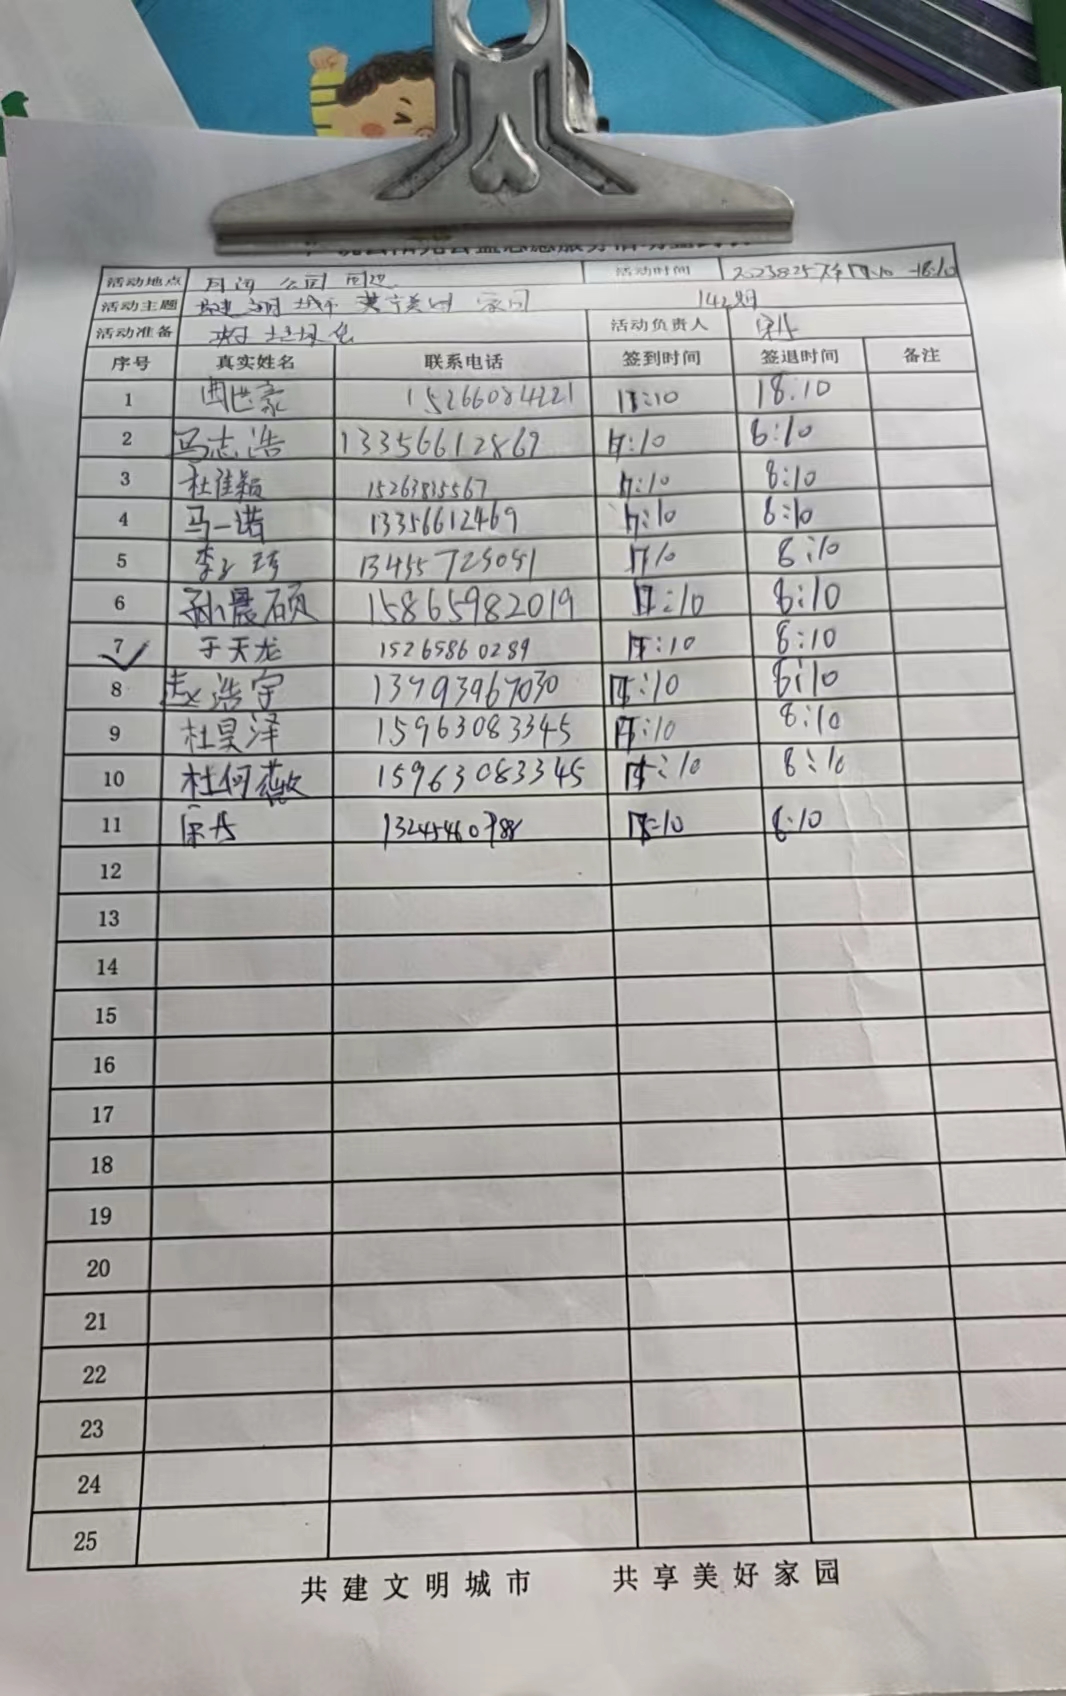 活动地点 月河 公园 周边 活动时间 2023825下午17:10 -18:10
活动主题 城市 共享美好 家园 142期
活动准备 活动负责人 宋丹
序号 真实姓名 联系电话 签到时间 签退时间 备注
1 15266084221 17:10 18:10
2 马志浩 13356612869 17:10 6:10
3 杜佳颖 15263835567 17:10 8:10
4 马一诺 13356612469 17:10 8:10
5 李 13455725051 17/10 8:10
6 孙晨硕 15865982019 17:10 8:10
7 于天龙 15265860289 17:10 8:10
8 赵浩宇 13793967030 17:10 8:10
9 杜昊泽 15963083345 17:10 8:10
10 杜何薇 15963083345 17:10 8:10
11 宋丹 17:10 8:10
12
13
14
15
16
17
18
19
20
21
22
23
24
25
共建文明城市 共享美好家园